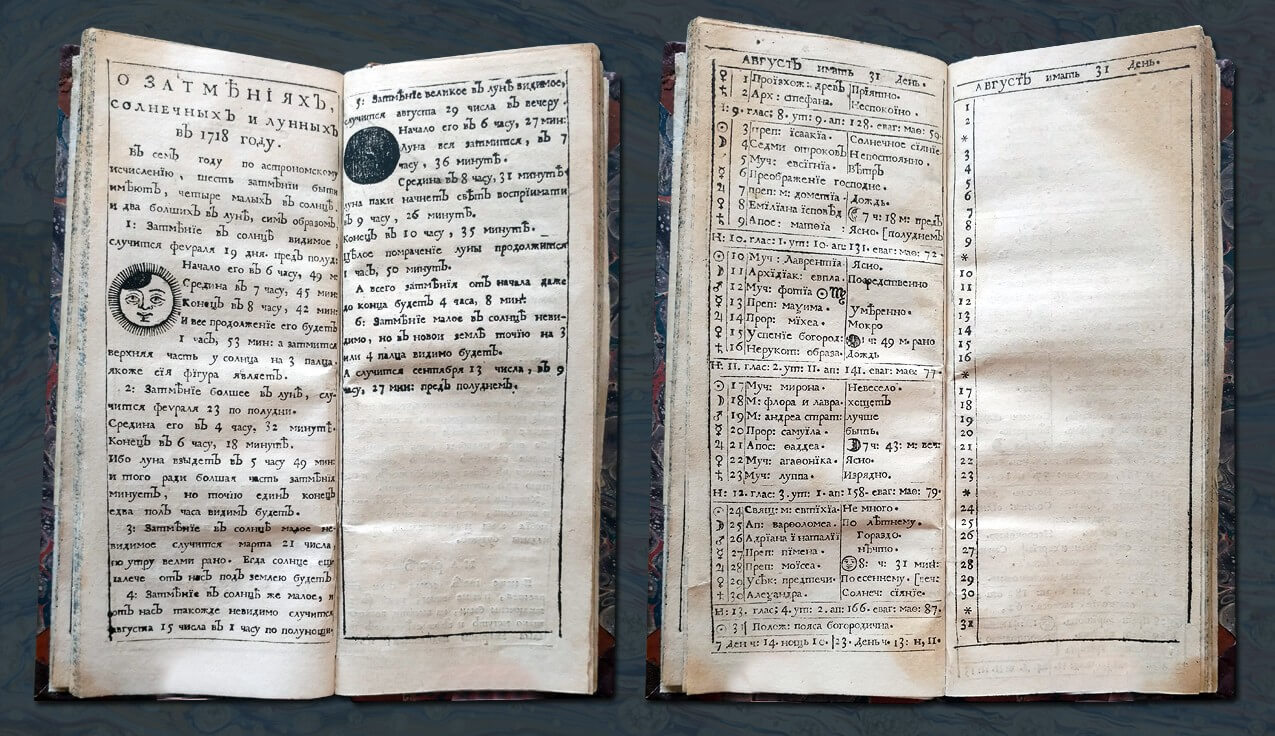 О ЗАТМѢНІЯХЪ,
СОЛНЕЧНЫХЪ И ЛУННЫХЪ
ВЪ 1718 ГОДУ.
ВЪ семЪ году по астрономскому
исчисленію, шесть затмѣнїи быти
имѣютЪ, четыре малыхЪ вЪ солнцѣ,
и два болшихЪ вЪ лунѣ, симЪ образомЪ
1: Затмѣнїе вЪ солнцѣ видимое,
случится феѵраля 19 дня. предЪ полуд:
Начало его вЪ 6 часу, 49 м
Средина вЪ 7 часу, 45 мин:
КонецЪ вЪ 8 часу, 42 мин:
И все продолженїе его будетЪ
1 часЪ, 53 мин: а затмится
верхняя часть у солнца на 3 палца.
якоже сїя фїгура являетЪ.
2: Затмѣнїе болшее вЪ лунѣ, слу-
чится феѵраля 23 по полудни.
Средина его вЪ 4 часу, 32 минутѣ.
КонецЪ вЪ 6 часу, 18 минутѣ.
Ибо луна взыдетЪ вЪ 5 часу 49 мин:
и того ради болшая часть затмѣнїя
минуетЪ, но точїю единЪ конецЪ
едва полЪ часа видимЪ будетЪ.
3: Затмѣнїе вЪ солнцѣ малое не-
видимое случится марта 21 числа,
по утру велми рано. Егда солнце еще
далече отЪ насЪ подЪ землею будетЪ
4: Затмѣнїе вЪ солнцѣ же малое, и
отЪ насЪ такожде невидимо случится
августа 15 числа вЪ 1 часу по полунощи.
5: Затмѣнїе великое вЪ лунѣ видимое,
случится августа 29 числа вЪ вечеру.
Начало его вЪ 6 часу, 27 мин:
Луна вся затмится, вЪ 7
часу, 36 минутѣ.
Средина вЪ 8 часу, 31 минутѣ
луна паки начнетЪ свѣтЪ воспрїимати
вЪ 9 часу, 26 минутѣ.
КонецЪ вЪ 10 часу, 35 минутѣ.
Цѣлое помраченїе луны продолжится
1 часЪ, 50 минутЪ.
А всего затмѣнїя отЪ начала даже
до конца будетЪ 4 часа, 8 мин:
6: Затмѣнїе малое вЪ солнцѣ неви-
димо, но вЪ новои землѣ точїю на 3
или 4 палца видимо будетЪ.
А случится сентября 13 числа, вЪ 9
часу, 27 мин: предЪ полуднемЪ.
АВГУСТЪ имать 31 день.
♀ 1 Проїзхож: древЪ Прїятно.
♄ 2 Арх: стефана. Неспокоїно.
9. глас: 8. ут: 9. ап: 128. еваг: маѳ: 59.
☉ 3 преп: їсаакїа. Солнечное сїянїе.
☽ 4 Седми отроковЪ Непостоянно.
♂ 5 Муч: евсїгнїа. ВѣтрЪ
☿ 6 Преображенїе господне.
♃ 7 преп: м: дометїа. Дождь.
♀ 8 Емїлїана їсповѣд ☾ 7 ч: 18 м: предЪ
♄ 9 Апос: матѳїа: Ясно. [полуднемЪ
Н: 10. глас: 1. ут: 10. ап: 131. еваг: маѳ: 72.
☉ 10 Муч: Лаврентїа Ясно.
☽ 11 Архїдїак: евпла. Посредственно
♂ 12 Муч: фотїа ☉ ♍
☿ 13 Преп: маѵима. Умѣренно.
♃ 14 Прор: мїхеа. Мокро
♀ 15 Успенїе богород: 1 ч: 49 м: рано
♄ 16 Нерукот: образа. Дождь
Н: 11. глас: 2. ут: 11. ап: 141. еваг: маѳ: 77.
☉ 17 Муч: мирона. Невесело.
☽ 18 М: флора и лавра. хощетЪ
♂ 19 М: андреа страт: лучше
☿ 20 Прор: самуїла. быть.
♃ 21 Апос: ѳаддеа. ☽ 7 ч: 43: м: веч:
♀ 22 Муч: агаѳонїка. Ясно.
♄ 23 Муч: луппа. Изрядно.
Н: 12. глас: 3. ут: 1. ап: 158. еваг: маѳ: 79.
☉ 24 Свящ: м: евтїхїа Не много.
☽ 25 Ап: варѳоломеа. по лѣтнему.
♂ 26 Адрїана ї наталїї Гораздо
☿ 27 Преп: пїмена. нѣчто.
♃ 28 Преп: моїсеа. 8: ч: 31 мин:
♀ 29 Усѣк: предпечи. По есеннему. [веч:
♄ 30 Алеѯандра. Солнеч: сїянїе.
Н: 13. глас: 4. ут: 2. ап: 166. еваг: маѳ: 87.
☉ 31 Полож: пояса богородична.
7 ден ч: 14. нощь 10. 23. день ч. 13: н, 11.
АВГУСТЪ имать 31 день.
1
2
*
3
4
5
6
7
8
9
*
10
11
12
13
14
15
16
*
17
18
19
20
21
22
23
*
24
25
26
27
28
29
30
*
31